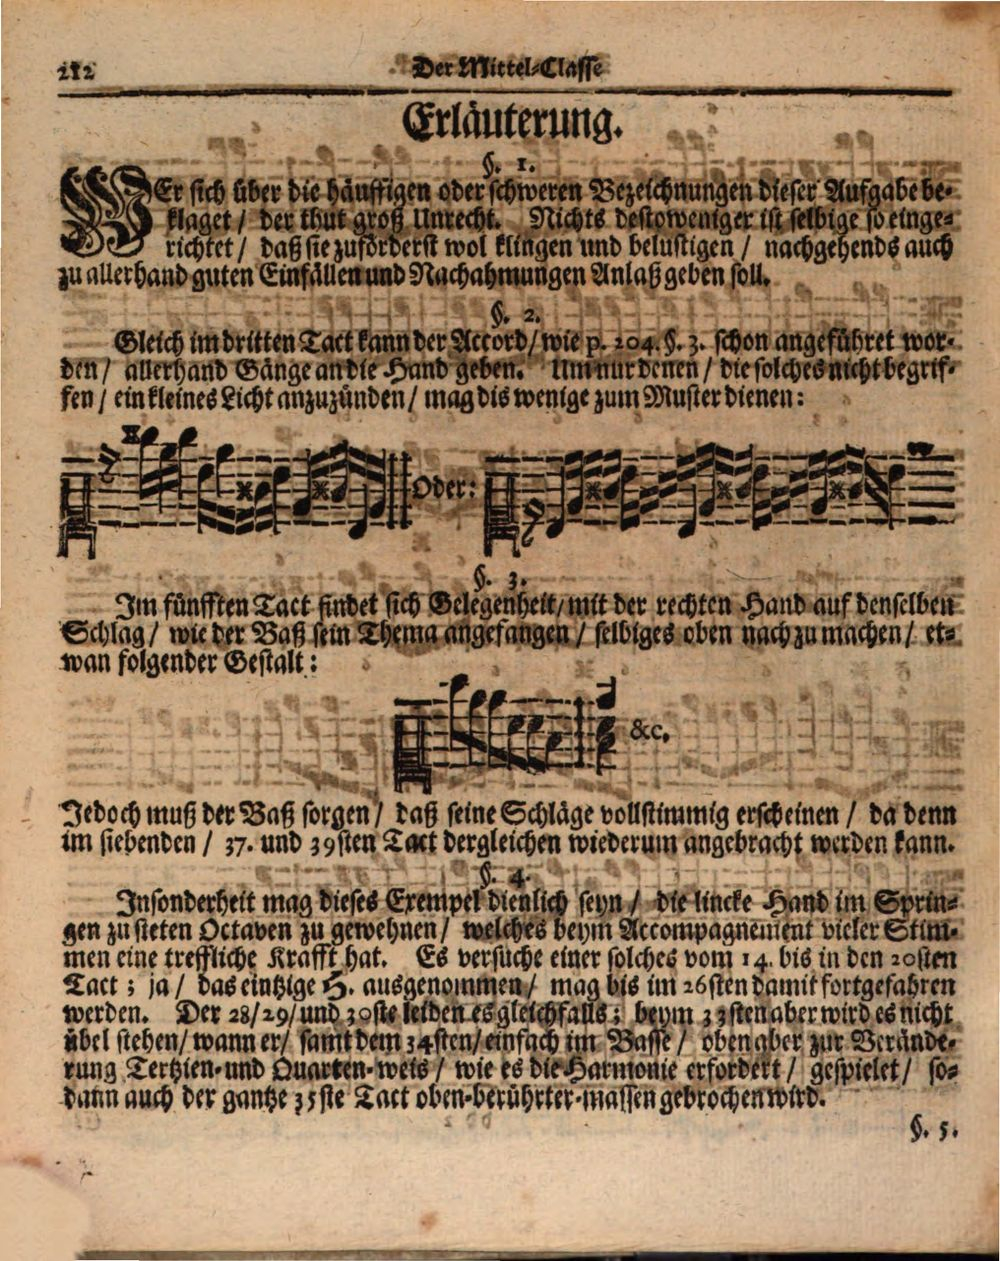 212 Der Mittel-Classe
Erläuterung.
§. 1.
WEr sich über die häuffigen oder schweren Bezeichnungen dieser Aufgabe be-
klaget / der thut groß Unrecht. Nichts destoweniger ist selbige so einge-
richtet / daß sie zuförderst wol klingen und belustigen / nachgehends auch
zu allerhand guten Einfällen und Nachahmungen Anlaß geben soll.
§. 2.
Gleich im dritten Tact kann der Accord / wie p. 204. §. 3. schon angeführet wor-
den / allerhand Gänge an die Hand geben. Um nur denen / die solches nicht begrif-
fen / ein kleines Licht anzuzünden / mag dis wenige zum Muster dienen:
Oder:
§. 3.
Im fünfften Tact findet sich Gelegenheit / mit der rechten Hand auf denselben
Schlag / wie der Baß sein Thema angefangen / selbiges oben nach zu machen / et-
wan folgender Gestalt:
&c.
Jedoch muß der Baß sorgen / daß seine Schläge vollstimmig erscheinen / da denn
im siebenden / 37. und 39sten Tact dergleichen wiederum angebracht werden kann.
§. 4.
Insonderheit mag dieses Exempel dienlich seyn / die lincke Hand im Sprin-
gen zu steten Octaven zu gewehnen / welches beym Accompagnement vieler Stim-
men eine treffliche Krafft hat. Es versuche einer solches vom 14. bis in den 20sten
Tact; ja / das eintzige H. ausgenommen / mag bis im 26sten damit fortgefahren
werden. Der 28/29/ und 30ste leiden es gleichfalls; beym 33sten aber wird es nicht
übel stehen / wann er / samt dem 34sten / einfach im Basse / oben aber zur Verände-
rung Tertzien- und Quarten-weis / wie es die Harmonie erfordert / gespielet / so-
dann auch der gantze 35ste Tact oben-berührter-massen gebrochen wird.
§. 5.